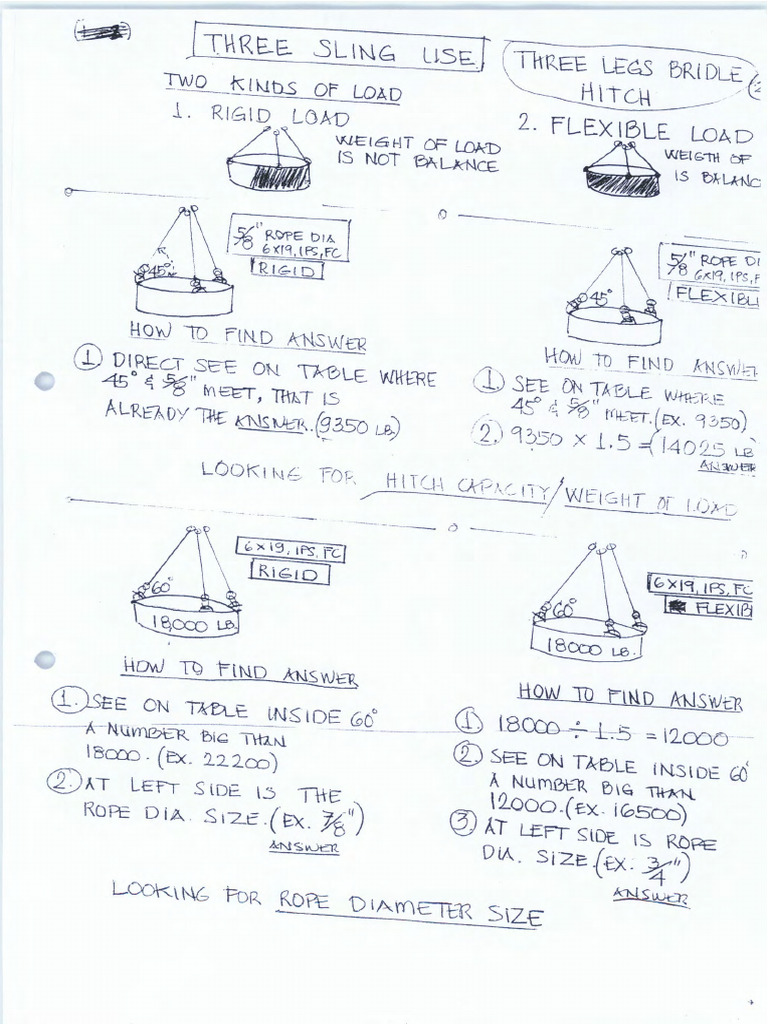 THREE SLING USE
THREE LEGS BRIDLE
HITCH
TWO KINDS OF LOAD
1. RIGID LOAD
WEIGHT OF LOAD
IS NOT BALANCE
2. FLEXIBLE LOAD
WEIGTH OF
IS BALANC
5/8" ROPE DIA
6X19, IPS, FC
RIGID
45°
HOW TO FIND ANSWER
① DIRECT SEE ON TABLE WHERE
45° & 5/8" MEET, THAT IS
ALREADY THE ANSWER. (9350 LB)
5/8" ROPE DI
6X19, IPS, F
FLEXIBL
45°
HOW TO FIND ANSWE
① SEE ON TABLE WHERE
45° & 5/8" MEET. (EX. 9350)
②. 9350 X 1.5 = (14025 LB)
ANSWER
LOOKING FOR HITCH CAPACITY/WEIGHT OF LOAD
6X19, IPS, FC
RIGID
60°
18,000 LB.
HOW TO FIND ANSWER
①. SEE ON TABLE INSIDE 60°
A NUMBER BIG THAN
18000. (EX. 22200)
②. AT LEFT SIDE IS THE
ROPE DIA. SIZE. (EX. 7/8")
ANSWER
6X19, IPS, FC
FLEXIB
60°
18000 LB.
HOW TO FIND ANSWER
① 18000 ÷ 1.5 = 12000
② SEE ON TABLE INSIDE 60°
A NUMBER BIG THAN
12000. (EX. 16500)
③. AT LEFT SIDE IS ROPE
DIA. SIZE. (EX. 3/4")
ANSWER
LOOKING FOR ROPE DIAMETER SIZE